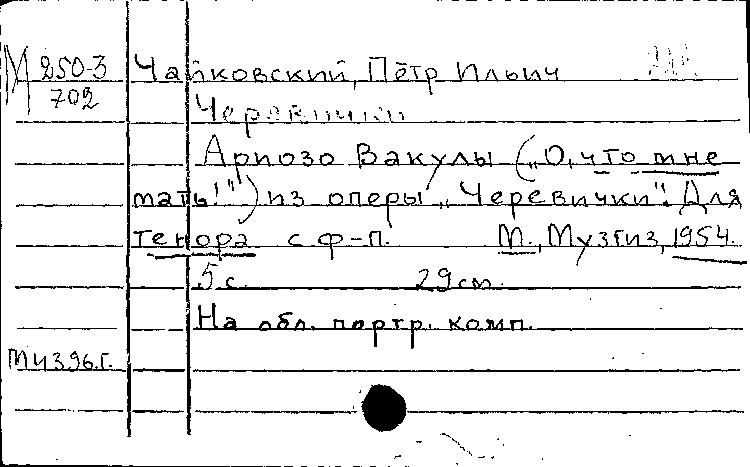 М 250-3 Чайковский, Пётр Ильич
702 Черевички
Ариозо Вакулы („О, что мне
мать!") из оперы „Черевички". Для
тенора с ф-п. М., Музгиз, 1954.
5 с. 29 см.
На обл. портр. комп.
М 4396.г.